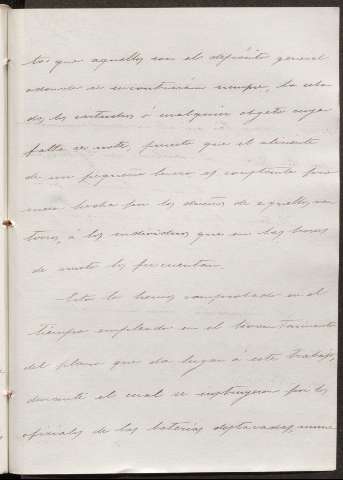 to que aquellos son el depósito general
adonde se encontrarán siempre, los
los entrados ó cualquier objeto cuya
falta se note, puesto que el aliciente
de un pequeño lucro es constante
hecha por los dueños de aquellos
á los individuos que en las horas
de asueto los frecuentan.
Esto lo hemos comprobado en el
tiempo empleado en el levantamiento
del plano que da lugar á este trabajo,
durante el cual se instruyeron por los
oficiales de las baterías destacadas,